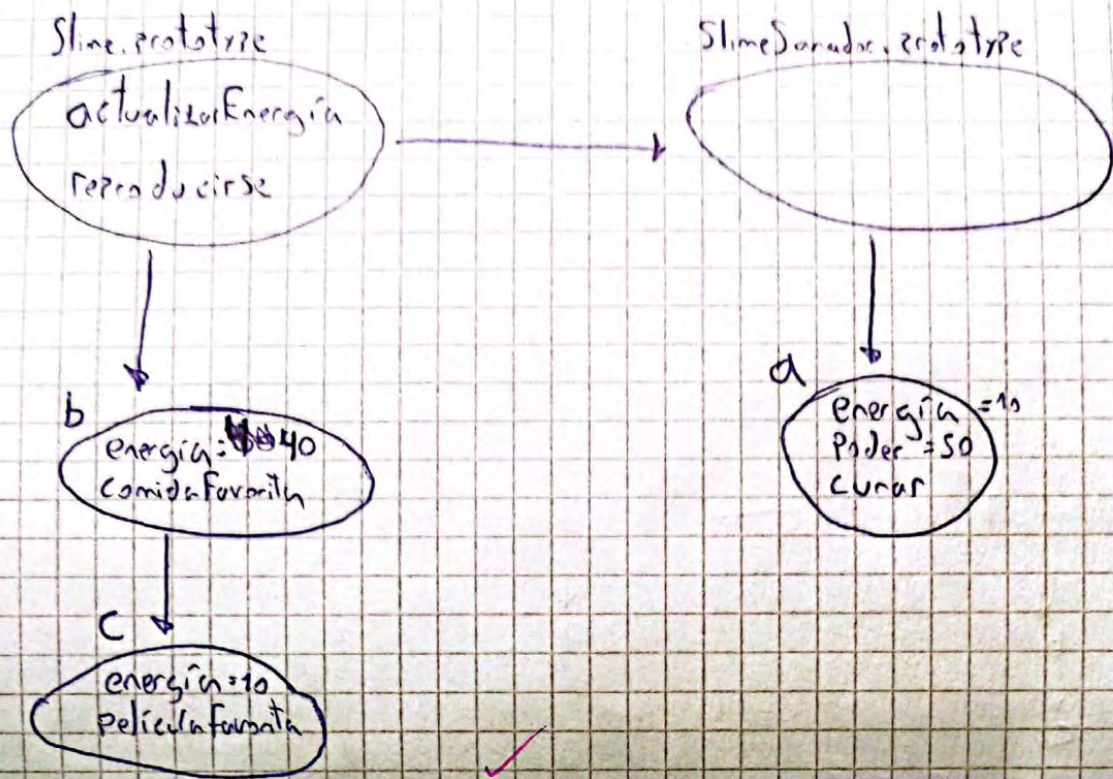 Slime.prototype
actualizarEnergía
reproducirse
SlimeSanador.prototype
b
energía: 40
comidaFavorita
a
energía =10
Poder =50
curar
c
energía=10
películafavorita